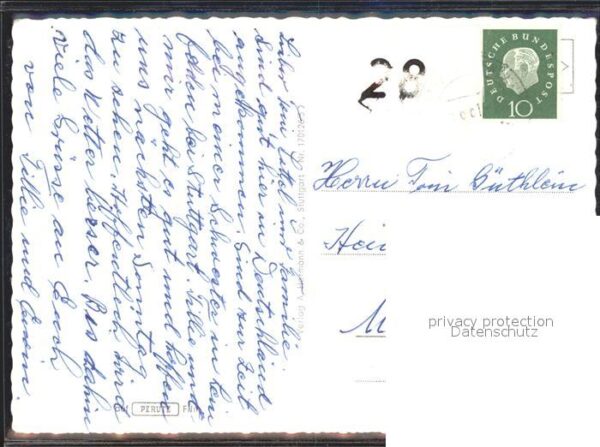 Lieber Toni, Ettel und Familie.
Sind gut hier in Deutschland
angekommen. Sind zur Zeit
bei meiner Schwester in
bei Stuttgart. Tillie und
mir geht es gut und hoffen
uns nächsten Sonntag
zu sehen. Hoffentlich wird
das Wetter besser. Bis dahin
viele Grüsse an Euch
von Tillie und
Verlag A. & Co., Stuttgart
PERUTZ
28
DEUTSCHE BUNDESPOST
10
Herrn Toni Güthlein
Hei
M
privacy protection
Datenschutz